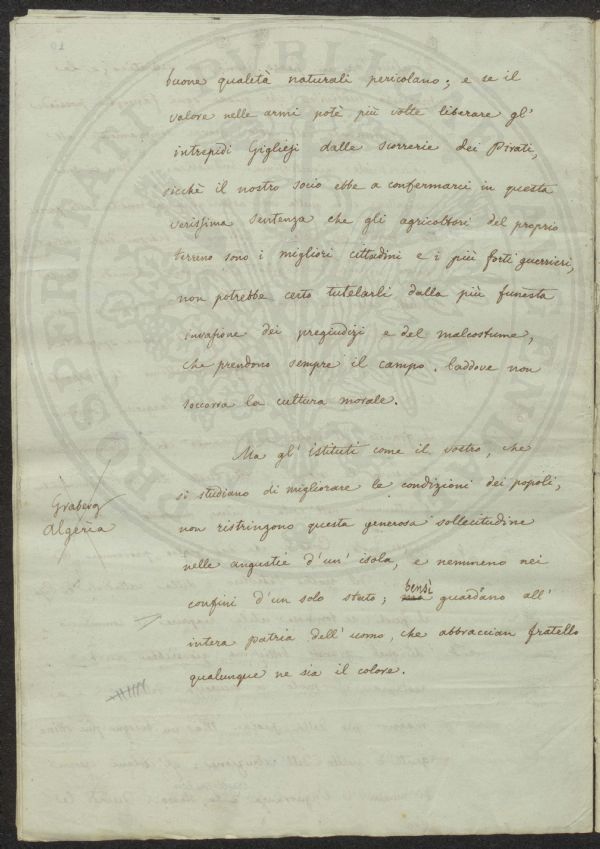 buone qualità naturali pericolano; e se il
valore nelle armi potè più volte liberare gl'
intrepidi Gigliesi dalle scorrerie dei Pirati,
sicchè il nostro socio ebbe a confermarci in questa
verissima sentenza che gli agricoltori del proprio
terreno sono i migliori cittadini e i più forti guerrieri,
non potrebbe certo tutelarli dalla più funesta
invasione dei pregiudizi e del malcostume,
che prendono sempre il campo, laddove non
soccorra la cultura morale.
Ma gl' istituti come il vostro, che
si studiano di migliorare le condizioni dei popoli,
Graberg
Algeria
non ristringono questa generosa sollecitudine
nelle angustie d'un' isola, e nemmeno nei
confini d'un solo stato; ma bensì guardano all'
intera patria dell' uomo, che abbraccian fratello
qualunque ne sia il colore.